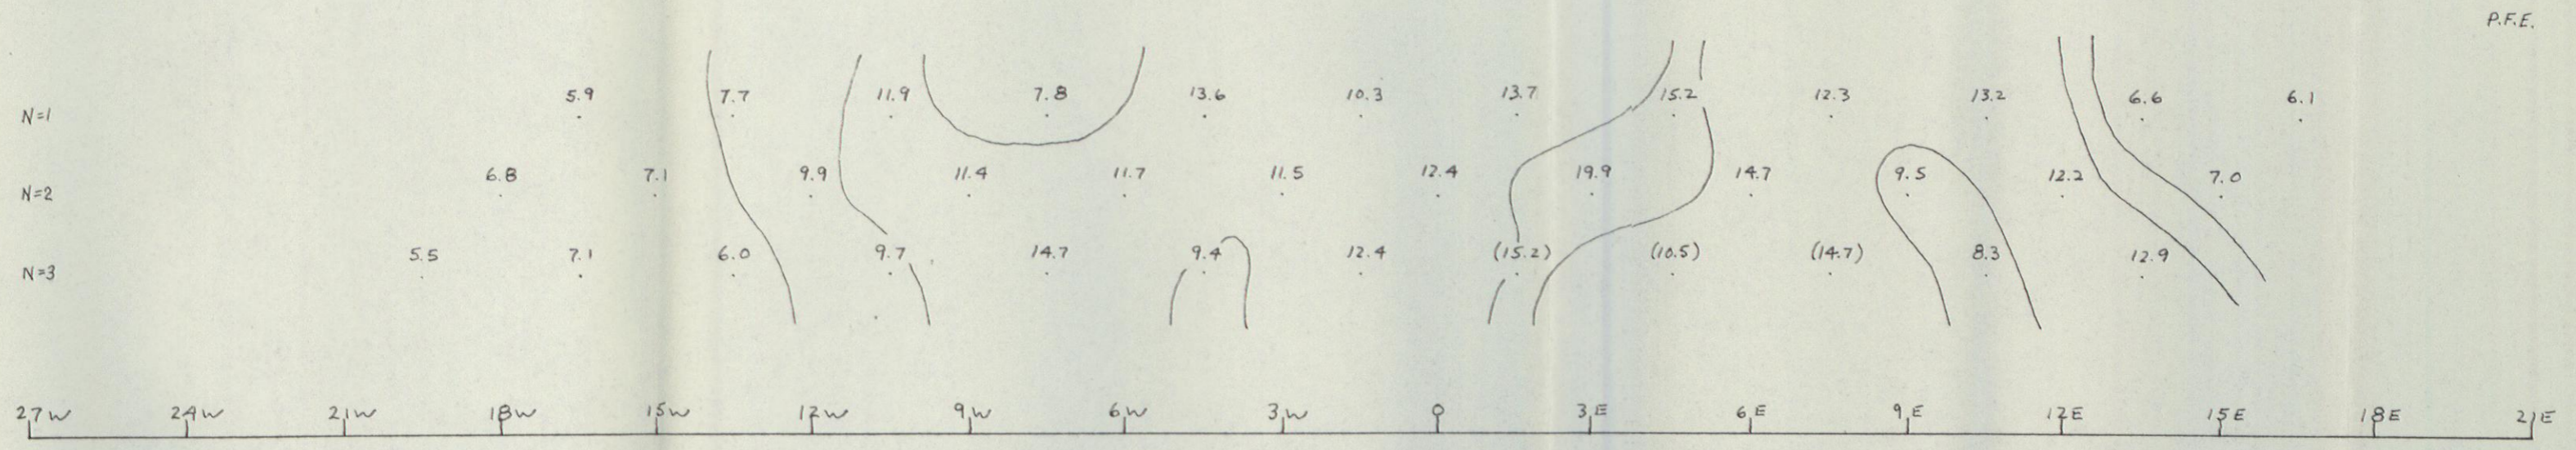 P.F.E.
N=1 5.9 7.7 11.9 7.8 13.6 10.3 13.7 15.2 12.3 13.2 6.6 6.1
N=2 6.8 7.1 9.9 11.4 11.7 11.5 12.4 19.9 14.7 9.5 12.2 7.0
N=3 5.5 7.1 6.0 9.7 14.7 9.4 12.4 (15.2) (10.5) (14.7) 8.3 12.9
27W 24W 21W 18W 15W 12W 9W 6W 3W 0 3E 6E 9E 12E 15E 18E 21E